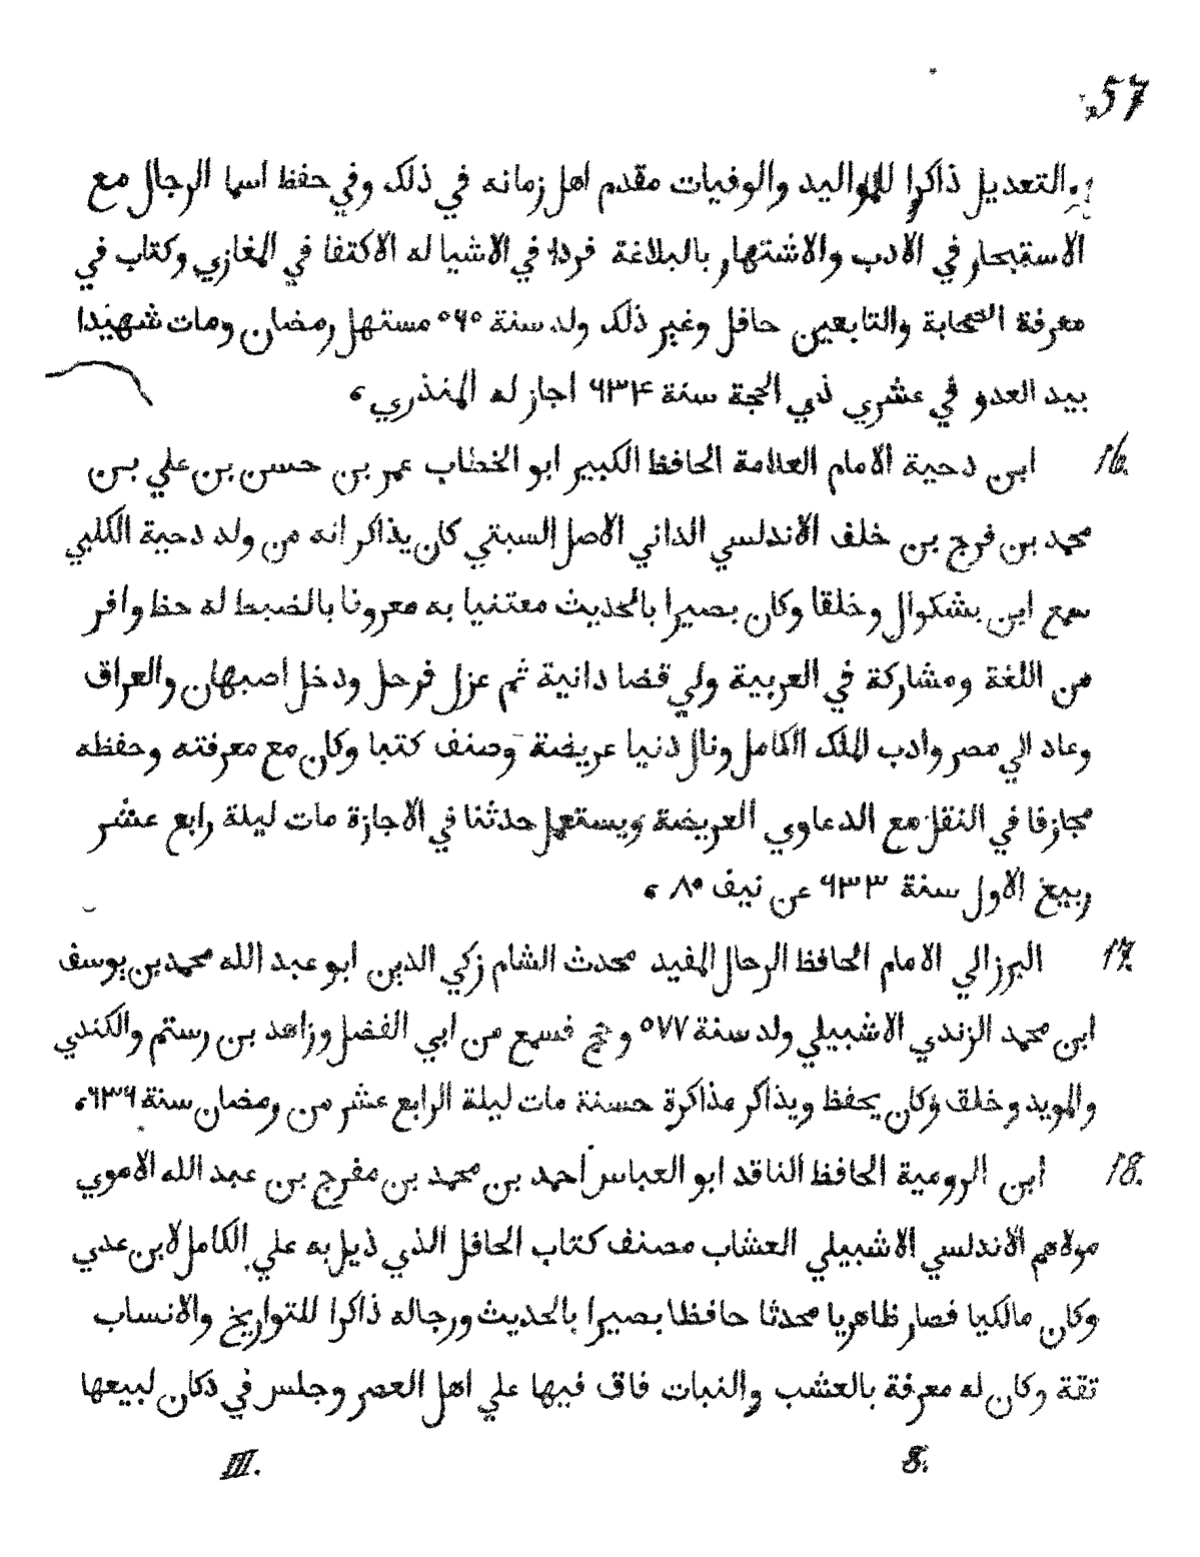 57
والتعديل ذاكرا للمواليد والوفيات مقدم اهل زمانه في ذلك وفي حفظ اسما الرجال مع
الاستبحار في الادب والاشتهار بالبلاغة فردا في الاشيا له الاكتفا في المغازي وكتاب في
معرفة الصحابة والتابعين حافل وغير ذلك ولد سنة ٥٦٥ مستهل رمضان ومات شهيدا
بيد العدو في عشري ذي الحجة سنة ٦٣٤ اجاز له المنذري ،
16. ابن دحية الامام العلامة الحافظ الكبير ابو الخطاب عمر بن حسن بن علي بن
محمد بن فرج بن خلف الاندلسي الداني الاصل السبتي كان يذاكر انه من ولد دحية الكلبي
سمع ابن بشكوال وخلقا وكان بصيرا بالحديث معتنيا به معروفا بالضبط له حظ وافر
من اللغة ومشاركة في العربية ولي قضا دانية ثم عزل فرحل ودخل اصبهان والعراق
وعاد الي مصر وادب الملك الكامل ونال دنيا عريضة وصنف كتبا وكان مع معرفته وحفظه
مجازفا في النقل مع الدعاوي العريضة ويستعمل حدثنا في الاجازة مات ليلة رابع عشر
ربيع الاول سنة ٦٣٣ عن نيف ٨٥ ،
17. البرزالي الامام الحافظ الرحال المفيد محدث الشام زكي الدين ابو عبد الله محمد بن يوسف
ابن محمد الزندي الاشبيلي ولد سنة ٥٧٧ وحج فسمع من ابي الفضل وزاهد بن رستم والكندي
والمويد وخلق وكان يحفظ ويذاكر مذاكرة حسنة مات ليلة الرابع عشر من رمضان سنة ٦٣٦ ،
18. ابن الرومية الحافظ الناقد ابو العباس احمد بن محمد بن مفرج بن عبد الله الاموي
مولاهم الاندلسي الاشبيلي العشاب مصنف كتاب الحافل الذي ذيل به علي الكامل لابن عدي
وكان مالكيا فصار ظاهريا محدثا حافظا بصيرا بالحديث ورجاله ذاكرا للتواريخ والانساب
ثقة وكان له معرفة بالعشب والنبات فاق فيها علي اهل العصر وجلس في دكان لبيعها
III. 8.